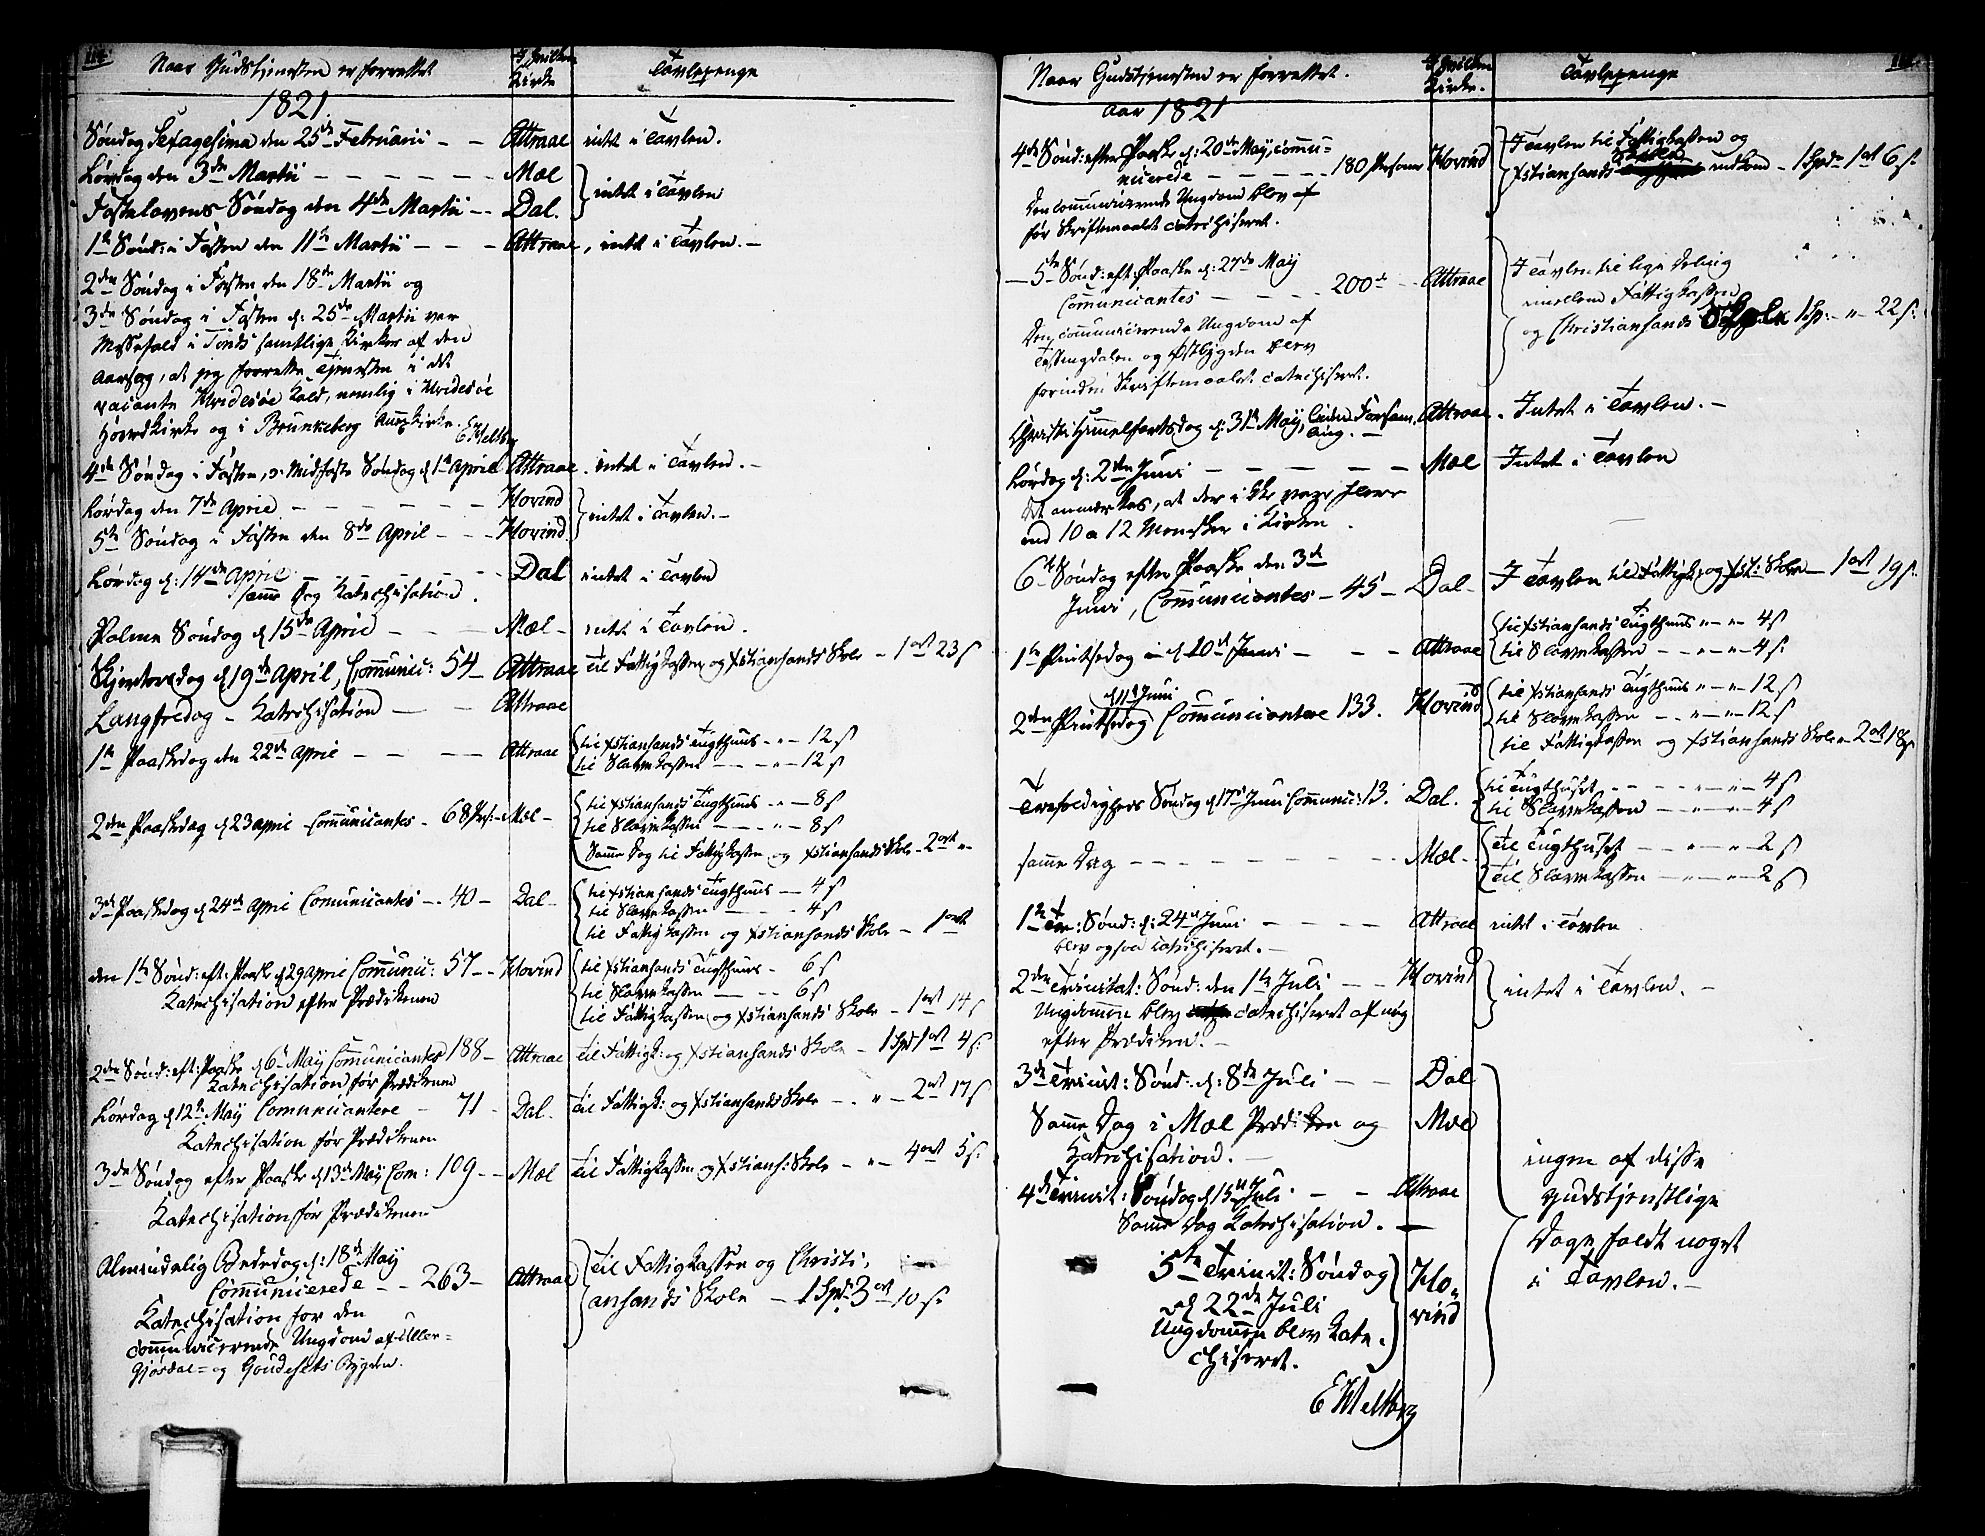 Naar Gudstjenesten er forrettet
I hvilken Kirke
Tavlepenge
1821.
Søndag Sexagesima den 25de Februarii - - Attraae intet i Tavlen.
Lørdag den 3de Martii - - - - - - Mæl
Fastelavens Søndag den 4de Martii - - Dal. intet i Tavlen
1te Sønd: i Fasten den 11te Martii - - - Attraae, intet i Tavlen. -
2den Søndag i Fasten den 18de Martii og
3de Søndag i Fasten d: 25de Martii var
Messefald i Tinds samtlige Kirker af den
Aarsag, at jeg forrettede Tjenesten i det
vacante Hvidesøe Kald, nemlig i Hvidesøe
Hovedkirke og i Brunkeberg Annexkirke. E Meltzer
4de Søndag i Fasten, o: Midfaste Søndag d 1te April Attraae. intet i Tavlen. -
Lørdag den 7de April - - - - - - Hovind
5te Søndag i Fasten den 8de April - - - Hovind intet i Tavlen. -
Lørdag d: 14de April - - Dal intet i Tavlen
samme Dag Katechisation.
Palme Søndag d 15de April - - - Mæl - intet i Tavlen.
Skjertorsdag d 19de April, Communic: 54 - Attraae til Fattigkassen og Xstiansands Skole - 1 ort 23 s
Langfredag - Katechisation - - - Attraae
1te Paaskedag den 22de April - - - - Attraae til Xstiansands Tugthuus - " - 12 s
til Slavekassen - - - " - 12 s
2den Paaskedag d 23 April - Communicantes - 68 Pers: - Mæl - til Xstiansands Tugthuus - " - 8 s
til Slavekassen - - - " - 8 s
Samme Dag til Fattigkassen og Xstiansands Skole - 2 ort "
3de Paaskedag d 24de April Communicantes - 40 - Dal - til Xstiansands Tugthuus - 4 s
til Slavekassen - - - 4 s
til Fattigkassen og Xstiansands Skole - 1 ort
den 1te Sønd: eft: Paaske d 29 April Communic: 57 - - Hovind til Xstiansands Tugthuus - 6 s
Katechisation efter Prædikenen
til Slavekassen - - - 6 s
til Fattigkassen og Xstiansands Skole - 1 ort 14 s
2den Sønd: eft: Paaske d 6te May Communicantes 188 - Attraae til Fattigk: og Xstiansands Skole - 1 Spd 1 ort 4 s.
Katechisation før Prædikenen
Lørdag d 12te May Communicantere - 71 - Dal - til Fattigk: og Xstiansands Skole - - " - 2 ort 17 s
Katechisation før Prædikenen
3de Søndag efter Paaske d 13de May Com: 109 - - Mæl til Fattigkassen og Xstians: Skole - " - 4 ort 5 s.
Katechisation før Prædikenen
Almindelig Bededag d: 18de May
Communicerede - - 263 - Attraae til Fattigkassen og Christi-
ansands Skole - 1 Spd 3 ort 10 s.
Katechisation for den
communicerende Ungdom af
Gjøsdal= og Gøudesets Bygden.
Naar Gudstjenesten er forrettet.
I hvilken Kirke.
Tavlepenge
Aar 1821
4de Sønd: efter Paaske d: 20de May, commu=
nicerede - - - - - 180 Personer Hovind I Tavlen til Fattigkassen og
Xstiansands Skolen indkom - 1 Spd 1 ort 6 s.
Den communicerende Ungdom blev
før Skriftemaalet catechiseret.
- 5te Sønd: eft: Paaske d: 27de May
Communicantes - - - - 200de - - Attraae I Tavlen til lige Deling
imellem Fattigkassen
og Christiansands Skole 1 Sp: - " - 22 s.
Den communicerende Ungdom af
Tessungdalen og Østbygden blev
forinden Skriftemaalet catechiseret.
Christi Himmelfartsdag d: 31te May, liden Forsam- Attraae. Intet i Tavlen. -
ling. -
Lørdag d: 2den Juni - - - - - Mæl Intet i Tavlen
Det anmærkes, at der ikke vare flere
end 10 a 12 Mennesker i Kirken.
6te Søndag efter Paaske den 3de
Juni, Communicantes - 45 - Dal - I Tavlen til Fattigk: og Xst: Skole - 1 ort 19 s.
1te Pintsedag - d 10de Juni - - - Attraae til Xstiansands Tugthuus " - " - 4 s
til Slavekassen - - " - " - 4 s.
d 11te Juni
2den Pintsedag Communicantere 133. Hovind til Xstiansands Tugthuus " - " - 12 s
til Slavekassen - - " - " - 12 s
til Fattigkassen og Xstiansands Skole - 2 ort 18 s
Trefoldigheds Søndag d 17de Juni Communic: 13. Dal. til Tugthuset - - - " - " - 4 s
til Slavekassen - - " - " - 4 s
samme Dag - - - - - - - - Mæl - til Tugthuset - - " - " - 2 s
til Slavekassen - - " - " - 2 s
1te Tr: Sønd: d: 24de Juni - - - - Attraae intet i Tavlen
blev ogsaa catechiseret. -
2den Trinitat: Sønd: den 1te Juli - - Hovind intet i Tavlen. -
Ungdommen blev catechiseret af mig
efter Prædiken. -
3de Trinit: Sønd: d: 8de Juli - - Dal
Samme Dag i Mæl Prædiken og Mæl
Katechisation. -
ingen af disse
gudstjenstlige
Dage faldt noget
i Tavlen. -
4de Trinit: Søndag d 15de Juli - - Attraae
Samme Dag Katechisation. -
5te Trinit: Søndag
d 22de Juli
Ho-
vind
Ungdommen blev kate-
chiseret.
E Meltzer